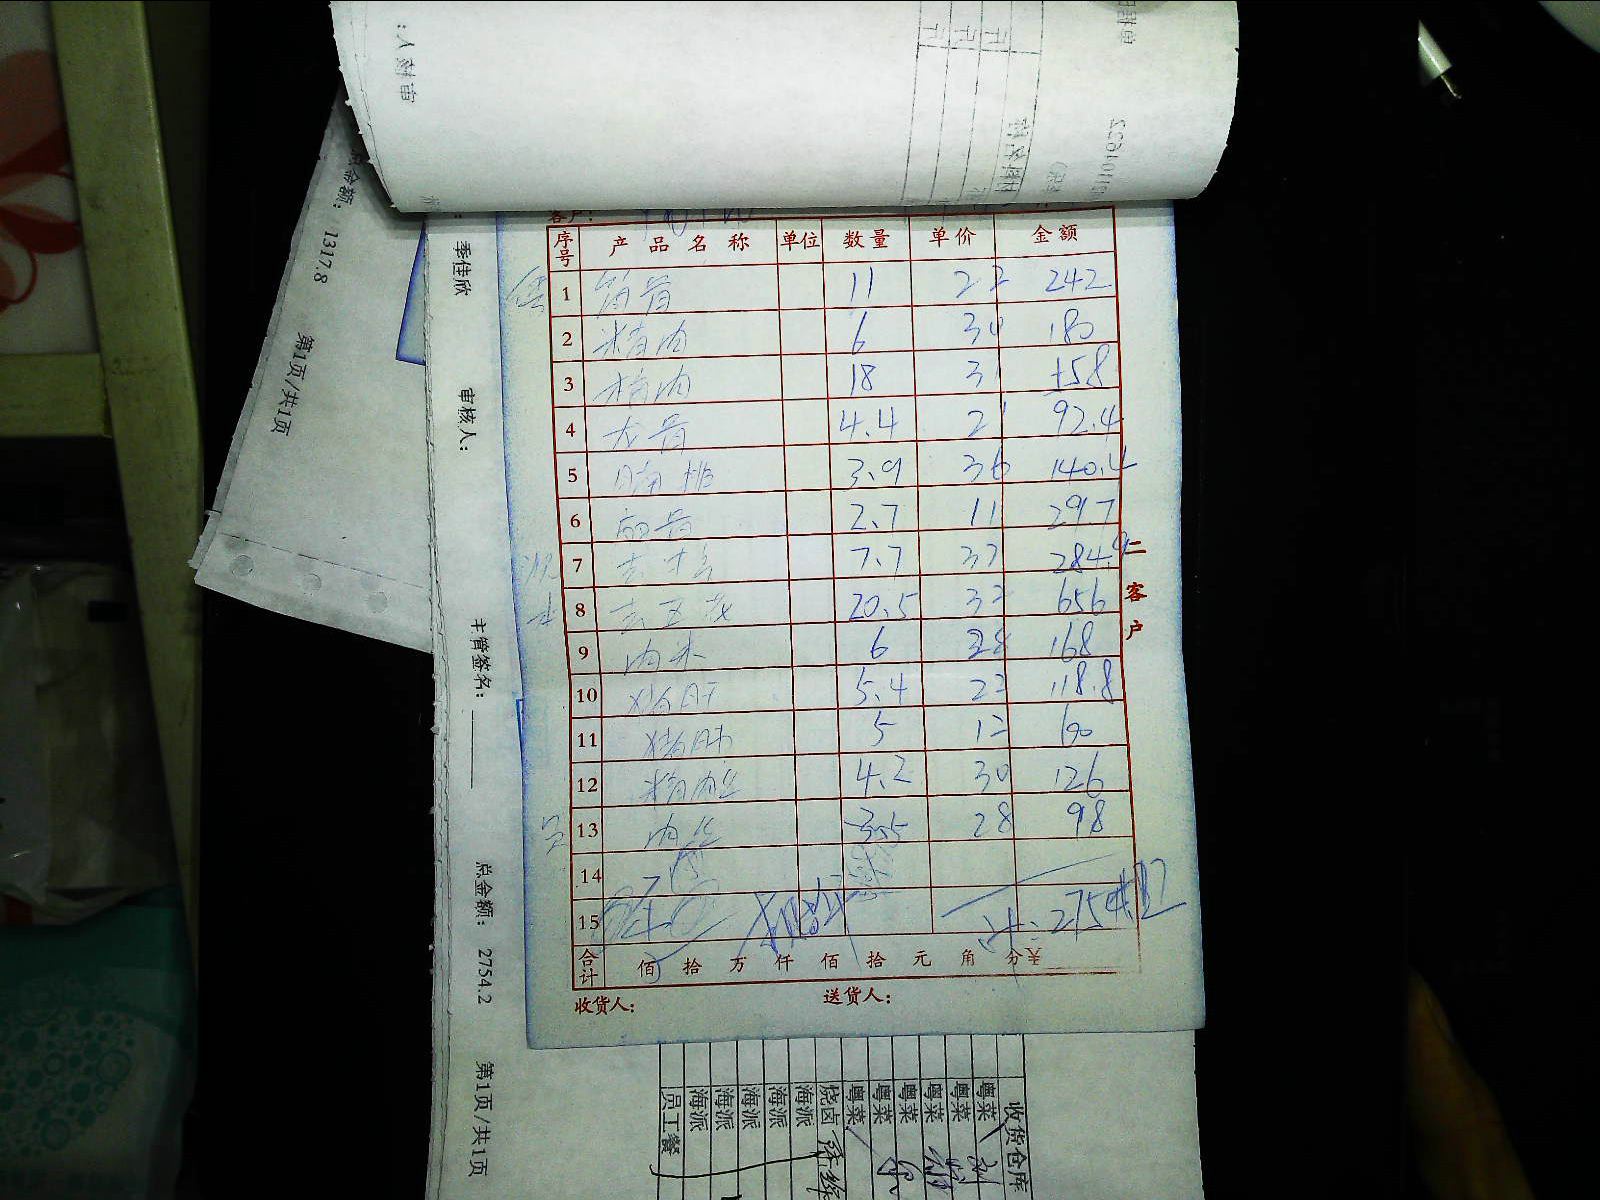 客户：
序号 产品名称 单位 数量 单价 金额
1 筒骨 11 22 242
2 精肉 6 30 180
3 精肉 18 31 558
4 龙骨 4.4 21 92.4
5 腩排 3.9 36 140.4
6 扇骨 2.7 11 29.7
7 7.7 37 284.9
8 去五花 20.5 32 656
9 肉米 6 28 168
10 猪肝 5.4 22 118.8
11 猪肺 5 12 60
12 精肉丝 4.2 30 126
13 肉丝 3.5 28 98
14
15 计：2754.2
合计 佰 拾 万 仟 佰 拾 元 角 分 ¥
收货人： 送货人：
二客户
季佳欣
审核人：
主管签名：
总金额： 2754.2
第1页/共1页
总金额： 1317.8
第1页/共1页
收货仓库
粤菜
粤菜
粤菜
粤菜
粤菜
粤菜
烧卤
海派
海派
海派
海派
海派
员工餐